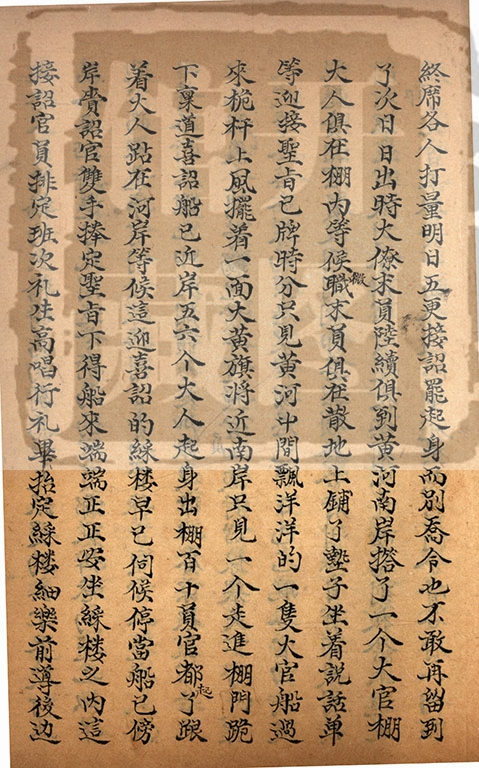 終席各人打量明日五更接詔罷起身而別喬令也不敢再留到
了次日日出時大僚末員陸續俱到黃河南岸搭了一个大官棚
大人俱在棚內等候微職末員俱在散地上鋪了墊子坐着説話单
等迎接聖旨已牌時分只見黃河中間飄洋洋的一隻大官船過
來桅杆上風擺着一面大黃旗将近南岸只見一个走進棚門跪
下稟道喜詔船已近岸五六个大人起身出棚百十員官都起了跟
着大人跕在河岸等候這迎喜詔的綵楼早已伺候停當船已傍
岸賫詔官雙手捧定聖旨下得船來端端正正安坐綵楼之內這
接詔官員排定班次礼生高唱行礼畢抬定綵楼細樂前導後边